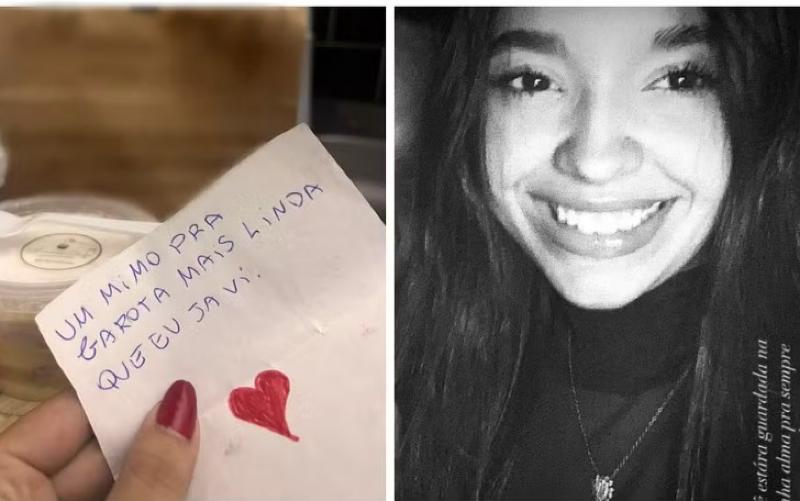 UM MIMO PRA
GAROTA MAIS LINDA
QUE EU JA VI.
estára guardada na
ha alma pra sempre